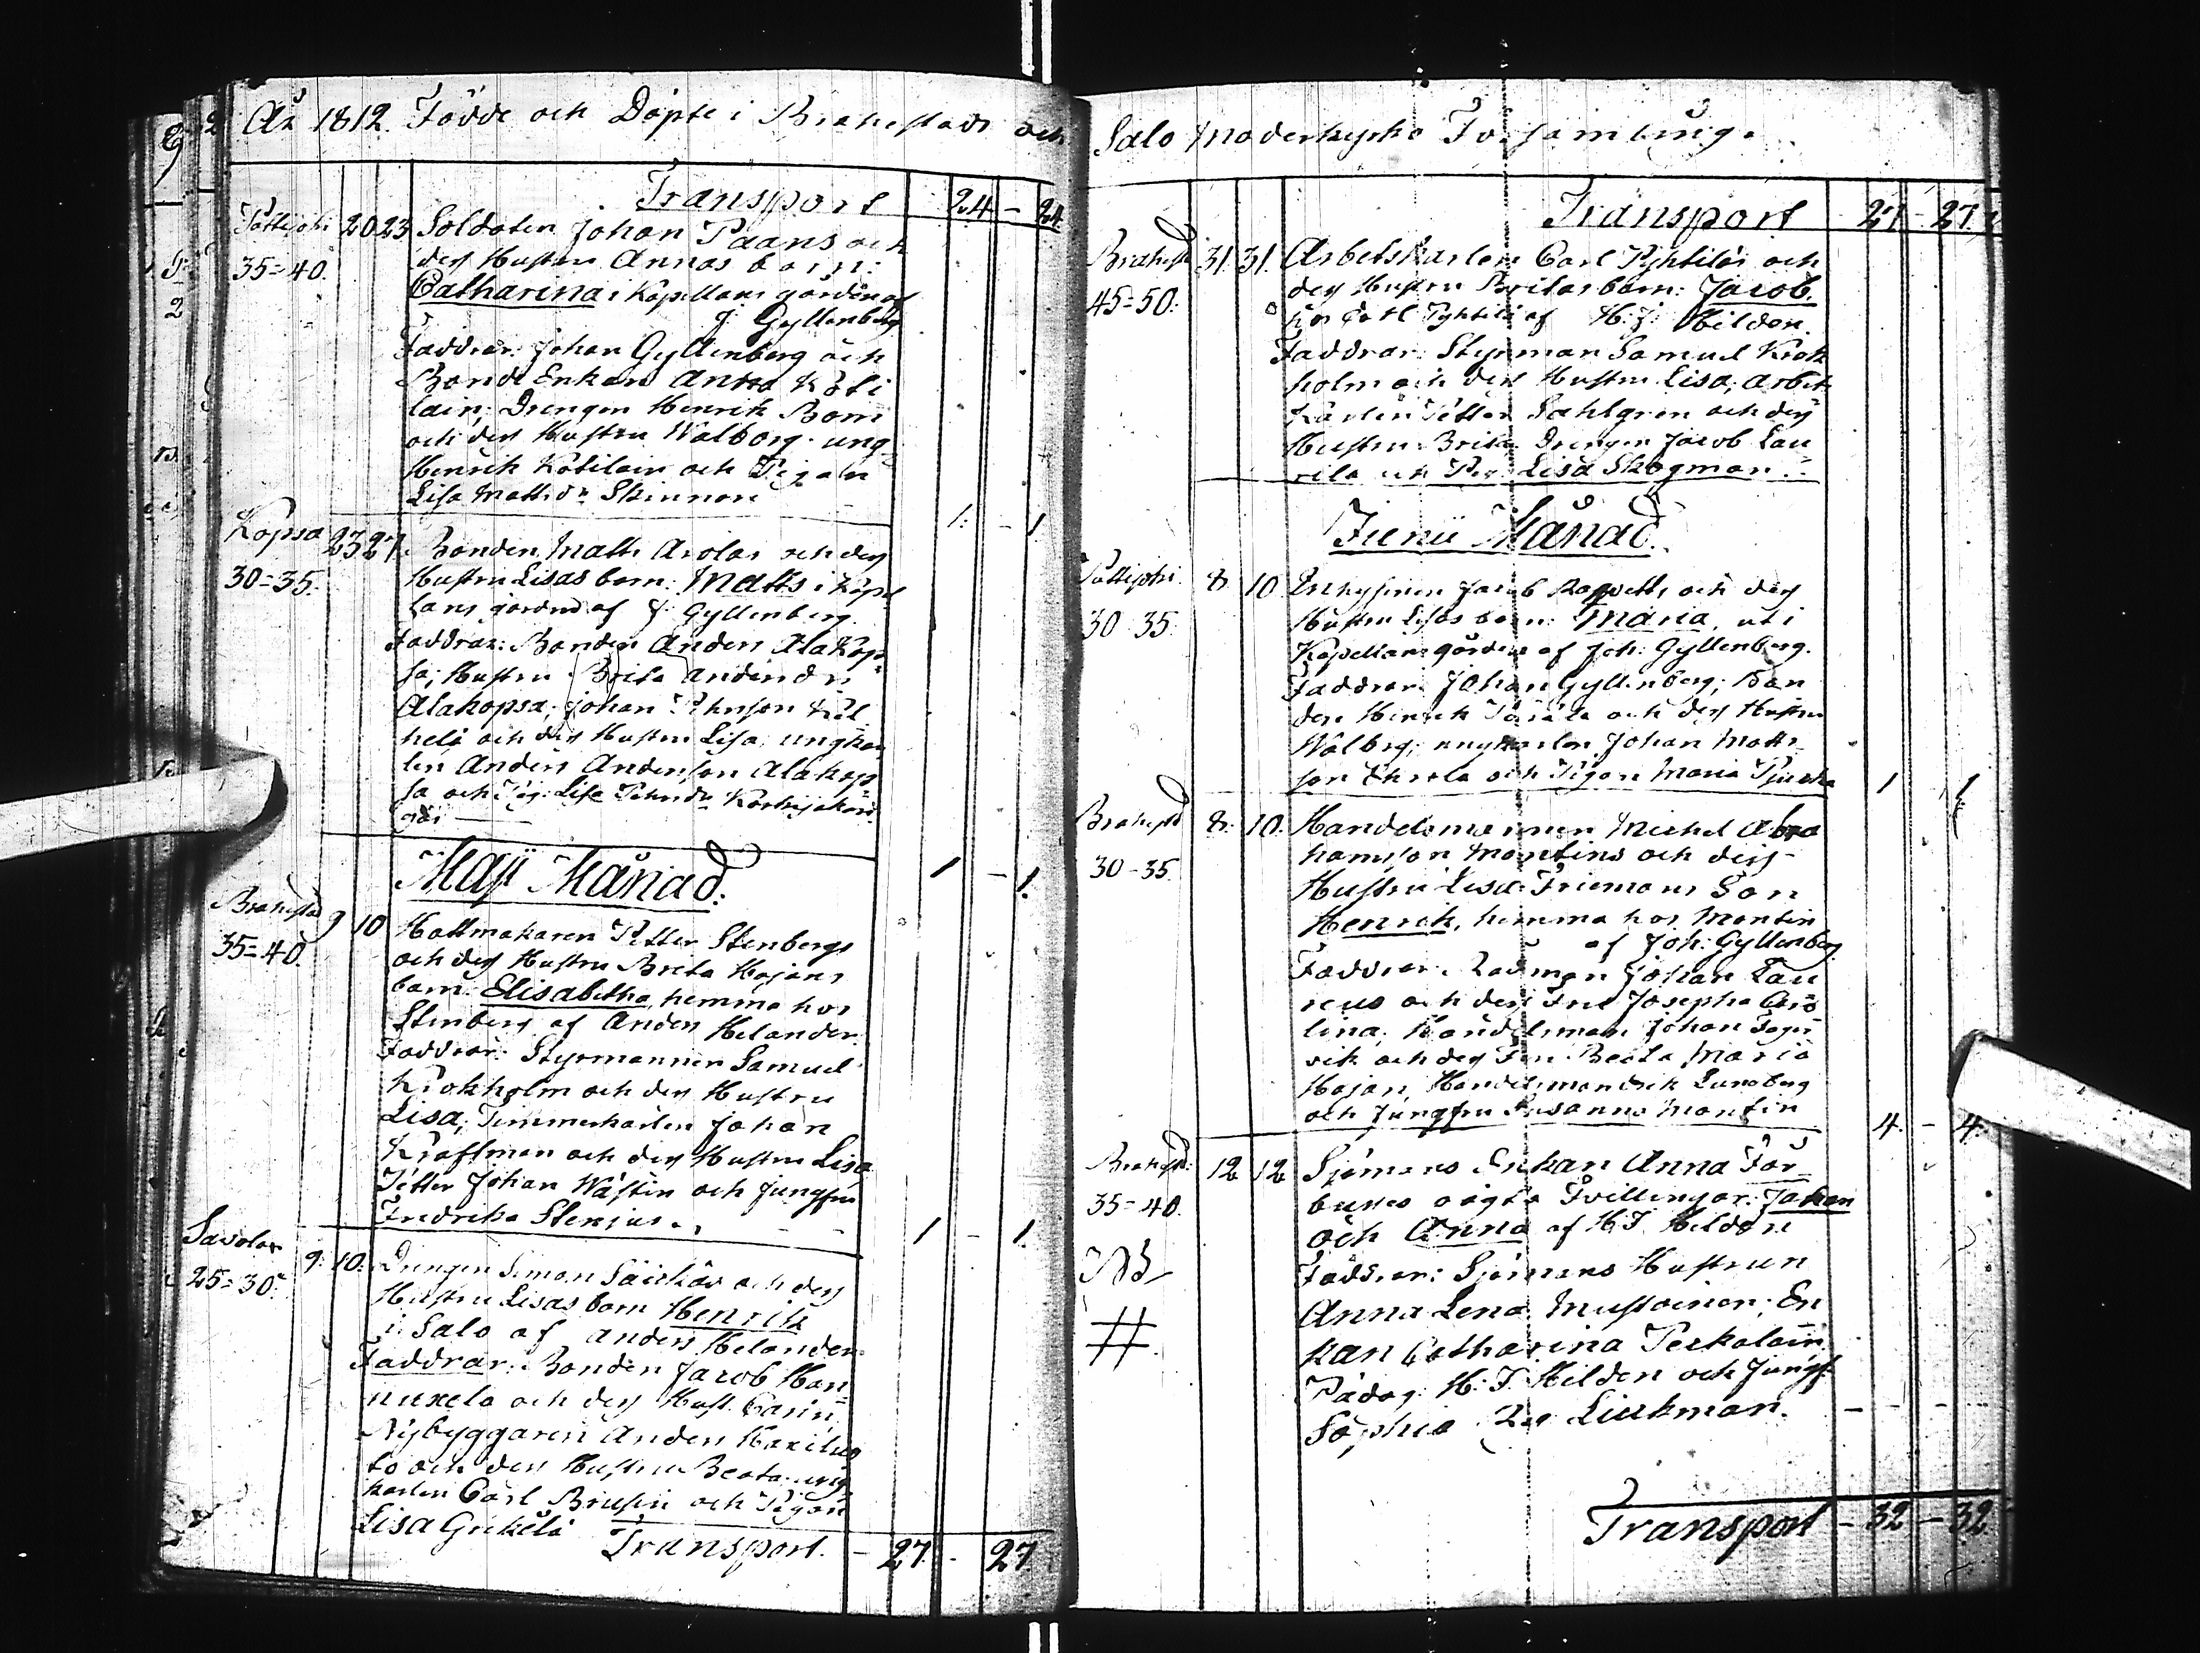 År 1812. Födde och Döpte i Brahestads och
Salo Moderkyrko Församling.
Transport 24 - 24
Pattijoki 20 23 Soldaten Johan Paans och
35=40. des Hustru Annas barn:
Catharina i Kapellans gården af
J. Gyllenberg
Faddrar: Johan Gyllenberg och
Bonde Enkan Anna Köti
lain; Drengen Henrik Bom
och des Hustru Walborg. ung.
Henrik Kötilain och Pigan
Lisa Matts dr Skinnari
1. - 1
Kopsa 23 27. Bonden Matts Arolas och des
30=35. Hustru Lisas barn: Matts i Kapel
lans gården af J. Gyllenberg.
Faddrar: Bonden Anders Alakop
sa; Hustru Brita Anders dr
Alakopsa; Johan
och des Hustru Lisa, ungkar
len Anders Andersson Alakop
sa och Pig: Lisa
Maji Månad.
1 - 1.
Brahestad 9 10 Hattmakaren Petter Stenbergs
35=40. och des Hustru Brita Hojans
barn: Elisabetha, hemma hos
Stenberg af Anders Helander
Faddrar: Styrmannen Samuel
Krokholm och des Hustru
Lisa; Timmerkarlen Johan
Kraftman och des Hustru Lisa
Petter Johan Wästin och Jungfru
Fredrika Stenius.
1 - 1.
Savolax 9. 10. Drengen Simon och des
25=30. Hustru Lisas barn Henrik
i Salo af Anders Helander.
Faddrar: Bonden Jacob Han
nuxela och des Hust. Carin,
Nybyggaren Anders
to och des Hustru Beata. ung
karlen Carl Brusin och Pigan
Lisa Grekelä
Transport. - 27 - 27
Transport - 27 - 27
Brahest 31. 31. Arbetskarlen Carl Pyhtiläs och
45=50: des Hustru Britas barn: Jacob,
hos Carl Pyhtilä af H: J: Hilden.
Faddrar: Styrman Samuel Krok
holm och des Hustru Lisa, arbets
karlen Petter Sahlgren och des
Hustru Brita Drengen Jacob Lau
rila och Pig: Lisa Skogman.
Junii Månad.
Pattijoki 8 10 Inhysinen Jacob och des
30 35 Hustru Lisas barn: Maria, uti
Kapellans gården af Joh: Gyllenberg.
Faddrar: Johan Gyllenberg; Bon
den Henrik och des Hustru
Walbrg; ungkarlen Johan Matts
son och Pigan Maria
1 1
Brahestd 8. 10. Handelsmannen Michel Abra
30-35. hamsson Montins och dess
Hustru Lisa Friemans Son
Henrik, hemma hos Montin
af Joh: Gyllenberg
Faddrar: Rådman Johan Lau
reus och des Fru Josepha Caro
lina, Handelsman Johan
och des Fru Beata Maria
Hojan, Handelsman Lundberg
och Jungfru Susanna Montin
4. - 4.
Brahestd: 12 12 Sjömans Enkan Anna For
35=40. busses oägta Tvillingar: Johan
och Anna af H J. Hilden
Faddrar: Sjömans Hustrun
Anna Lena Mustoinen; En
kan Catharina Perkolain.
Pädag: H. J. Hilden och Jungf.
Sophia Liukman.
- - -
Transport - 32 - 32